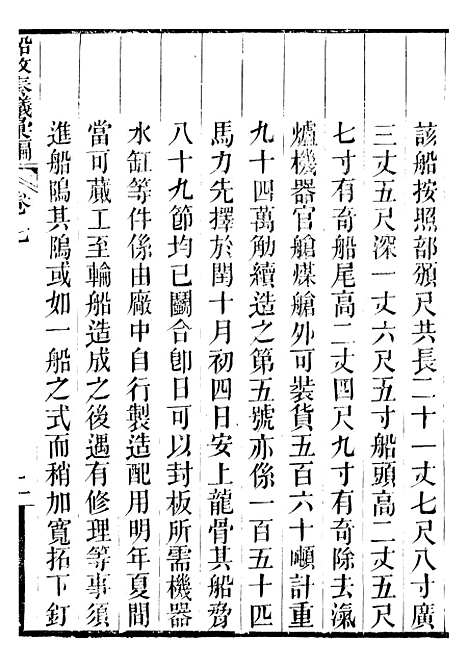 該船按照部頒尺共長二十一丈七尺八寸廣
三丈五尺深一丈六尺五寸船頭高二丈五尺
七寸有奇船尾高二丈四尺九寸有奇除去滊
爐機器官艙煤艙外可裝貨五百六十噸計重
九十四萬觔續造之第五號亦係一百五十匹
馬力先擇於閏十月初四日安上龍骨其船脅
八十九節均已鬭合卽日可以封板所需機器
水缸等件係由廠中自行製造配用明年夏間
當可蕆工至輪船造成之後遇有修理等事須
進船隖其隖或如一船之式而稍加寬拓下釘
船政奏議彙編 卷七